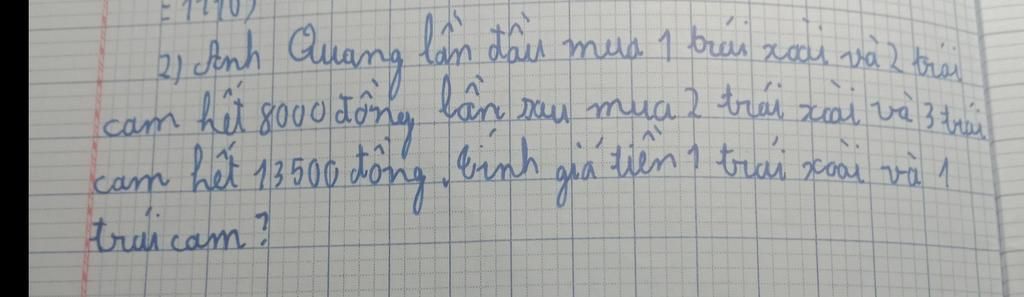 2) Anh Quang lần đầu mua 1 trái xoài và 2 trái
cam hết 8000 đồng, lần sau mua 2 trái xoài và 3 trái
cam hết 13500 đồng. tính giá tiền 1 trái xoài và 1
trái cam?